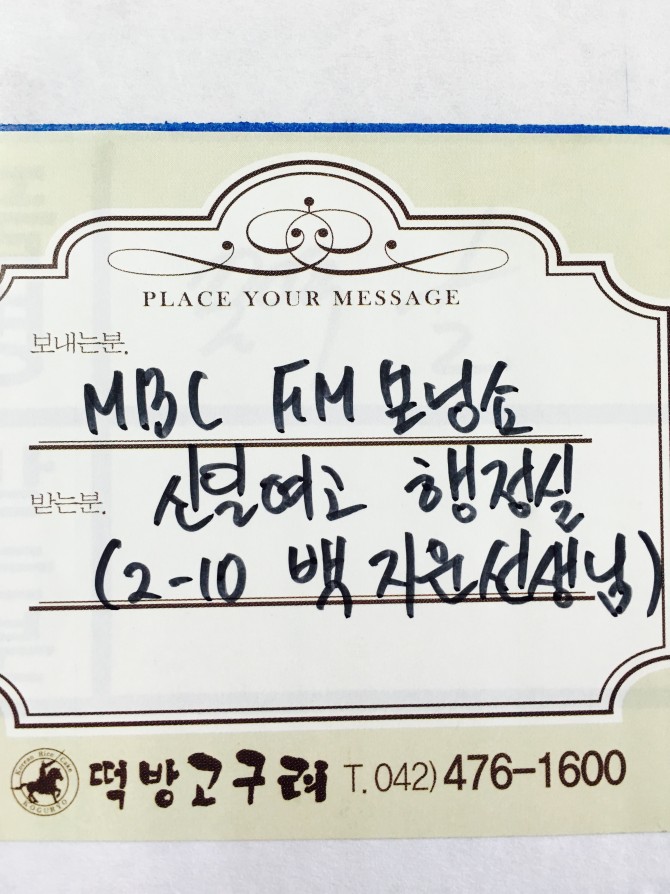 PLACE YOUR MESSAGE
보내는분.
MBC FM 모닝쇼
받는분. 신일여고 행정실
(2-10 백지원선생님)
Korean Rice Cake
KOGURYO
떡방고구려 T. 042) 476-1600